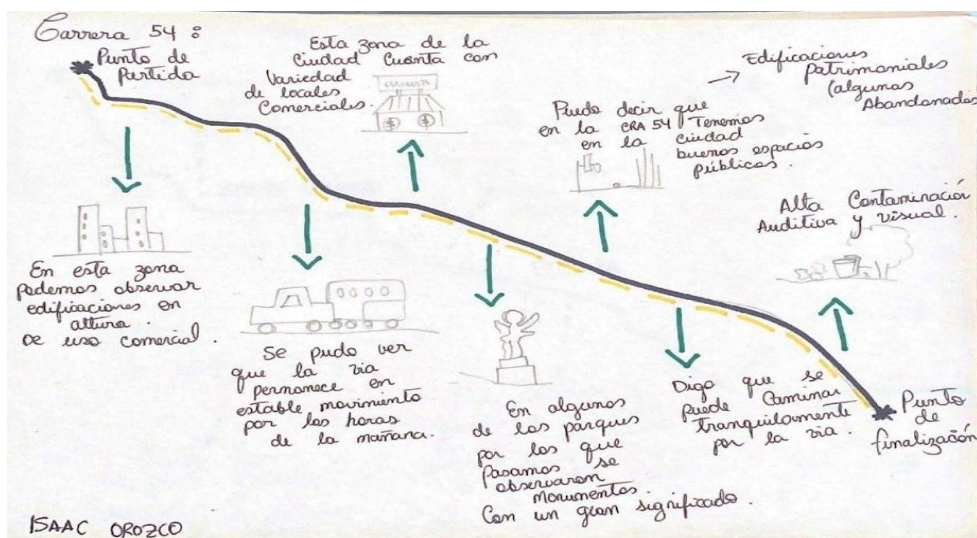 Carrera 54:
Punto de
Partida
Esta zona de la
Ciudad Cuenta con
Variedad
de locales
Comerciales.
Edificaciones
Patrimoniales
(algunas
Abandanadas)
Puedo decir que
en la CRA 54 Tenemos
en la ciudad
buenos espacios
públicos.
Alta Contaminación
Auditiva y visual.
En esta zona
podemos observar
edificaciones en
altura.
De uso comercial.
Se pudo ver
que la via
permanece en
estable movimiento
por las horas
de la mañana.
En algunos
de los parques
por los que
Pasamos se
observaron
monumentos
Con un gran significado.
Digo que se
Puede Caminar
tranquilamente
por la via.
Punto
de
finalización
ISAAC OROZCO